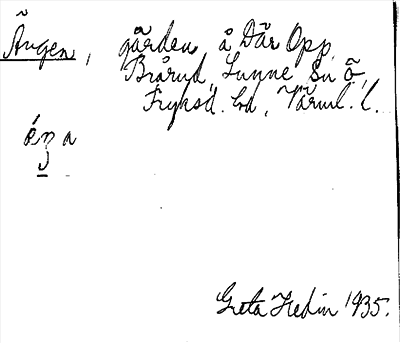 Ängen, gärden å Där Opp
Brårud, Sunne sn Ö,
Fryksd. hd, Värml. l.
Greta Hedin 1935.